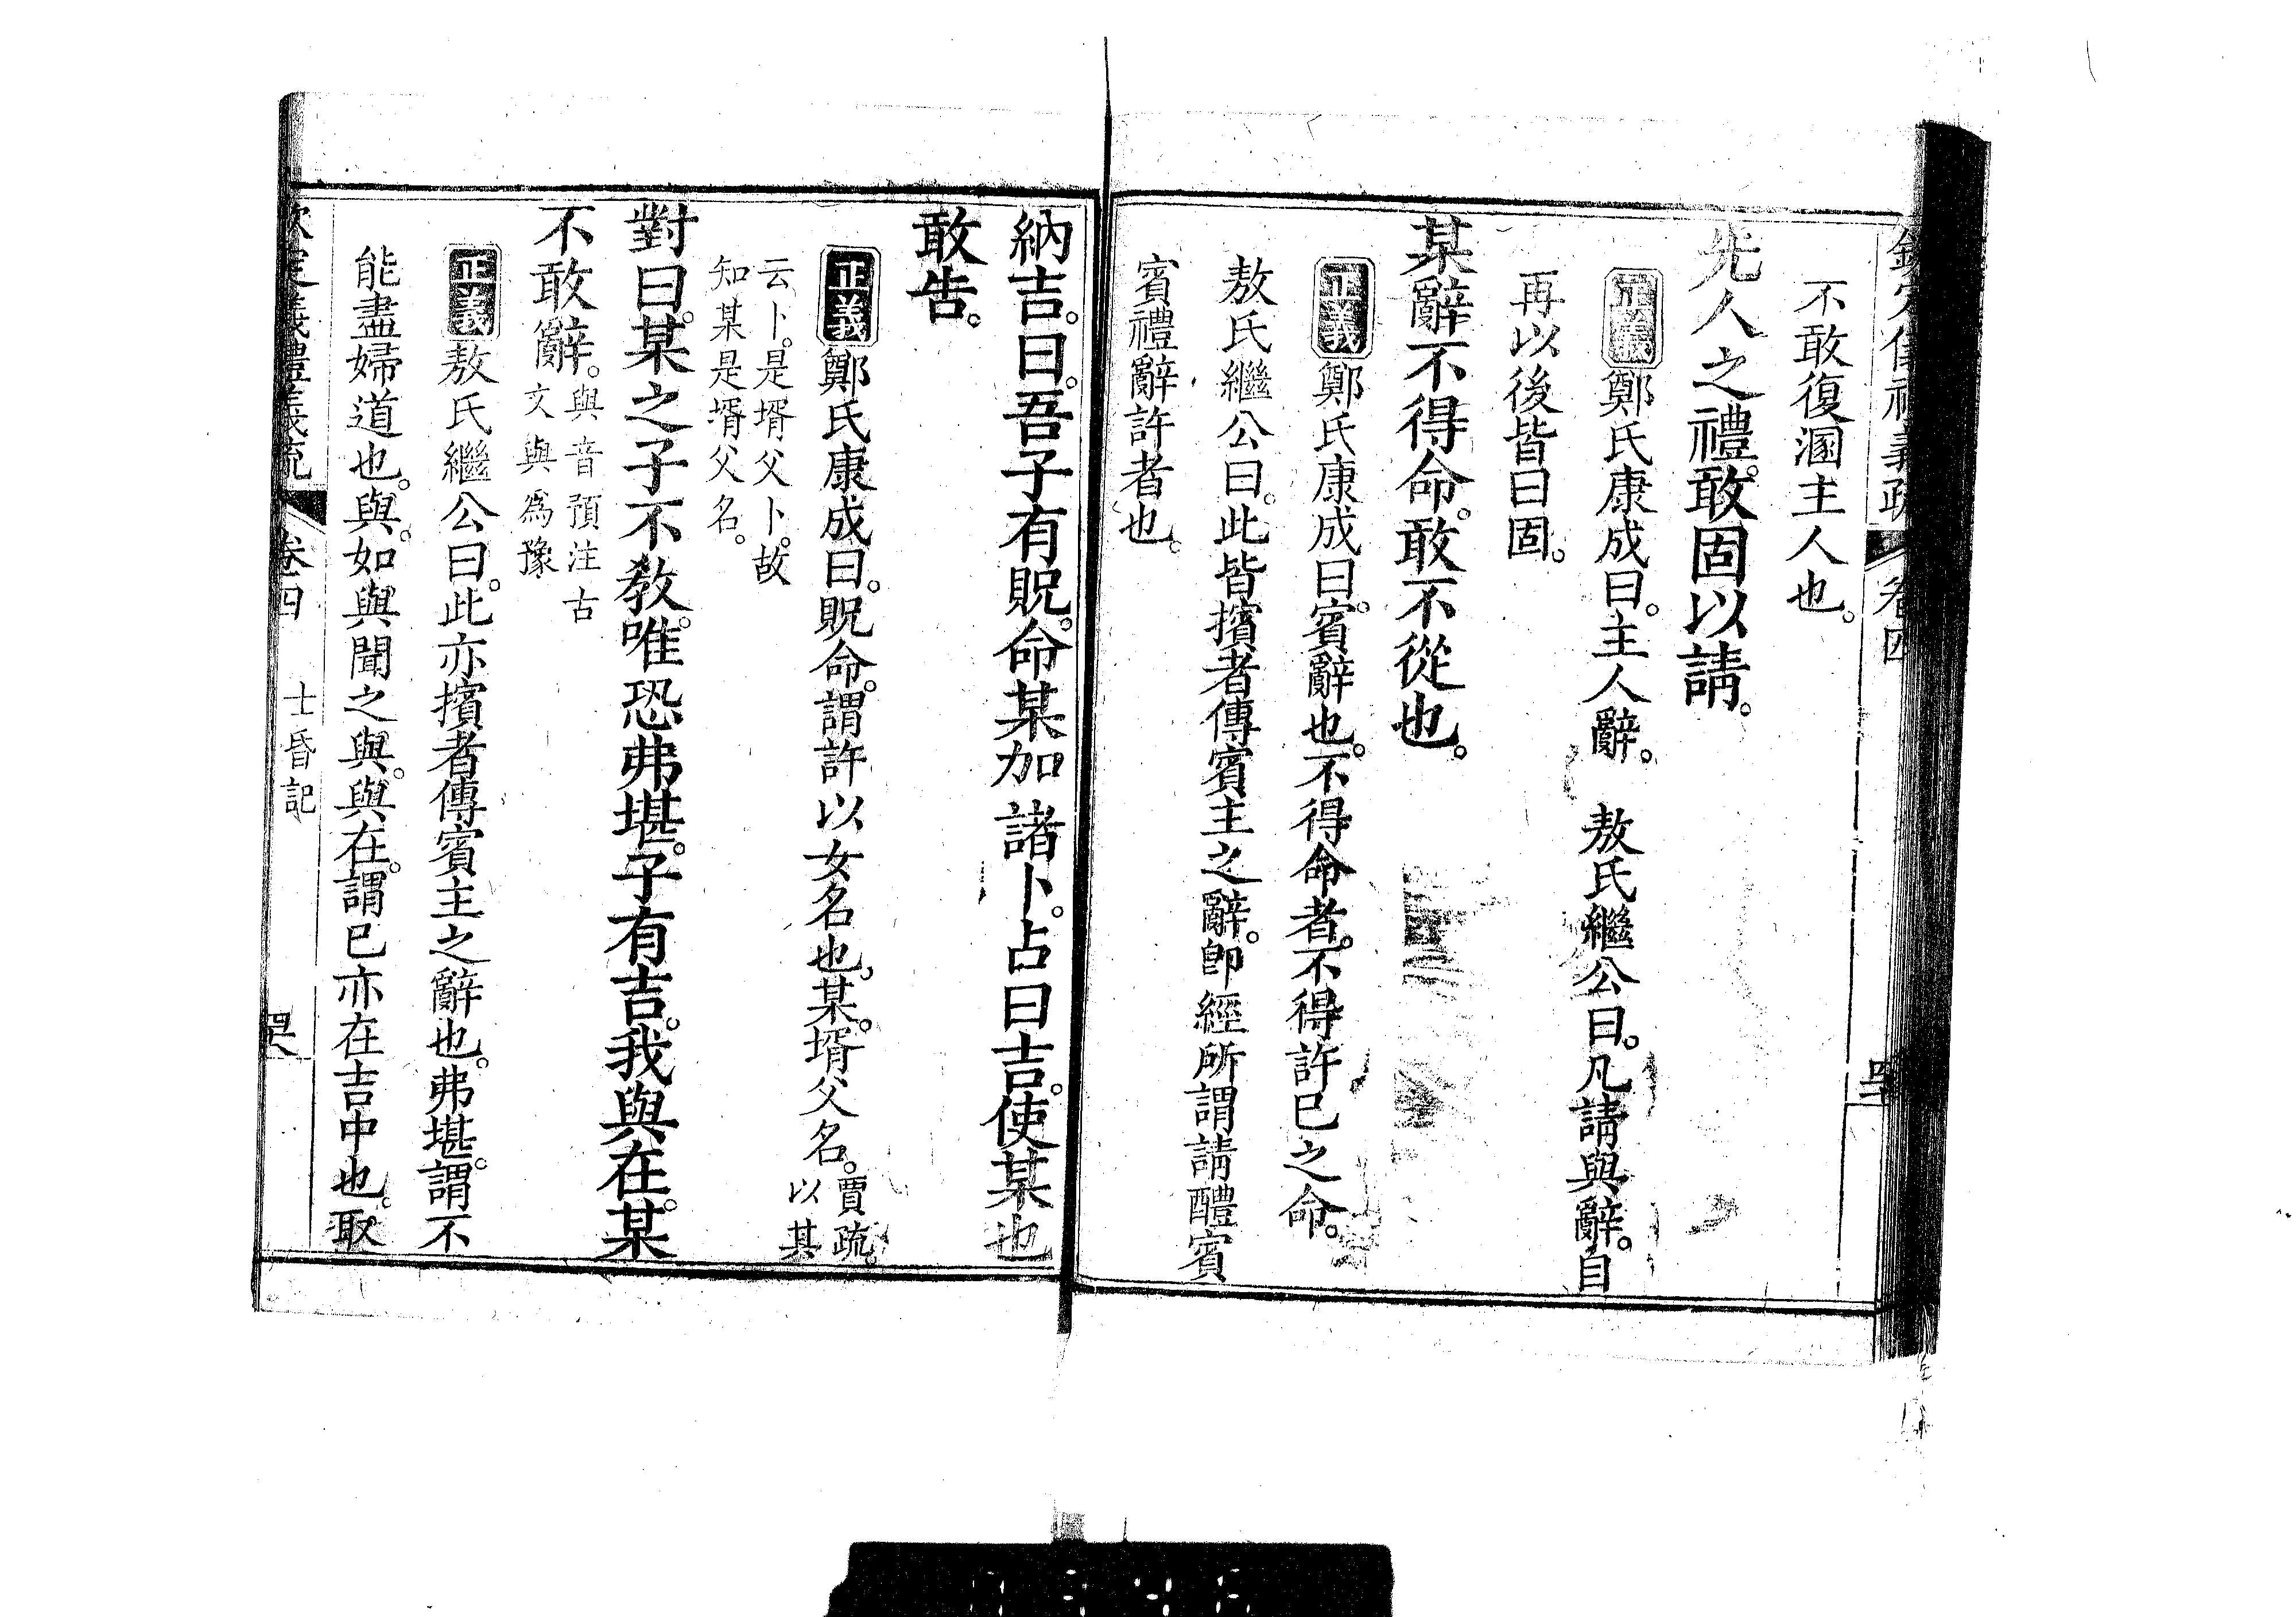 欽定儀禮義疏 卷四
不敢復溷主人也。
先人之禮。敢固以請。
正義 鄭氏康成曰。主人辭。 敖氏繼公曰。凡請與辭。自
再以後皆曰固。
某辭不得命。敢不從也。
正義 鄭氏康成曰。賓辭也。不得命者。不得許已之命。
敖氏繼公曰。此皆擯者傳賓主之辭。卽經所謂請醴賓
賓禮辭許者也。
納吉。曰。吾子有貺。命某加諸卜。占曰吉。使某也
敢告。
正義 鄭氏康成曰。貺命。謂許以女名也。某。壻父名。賈疏。以其
云卜。是壻父卜。故
知某是壻父名。
對曰。某之子不敎。唯恐弗堪。子有吉。我與在。某
不敢辭。與音預注古
文與爲豫
正義 敖氏繼公曰。此亦擯者傳賓主之辭也。弗堪。謂不
能盡婦道也。與。如與聞之與。與在。謂已亦在吉中也。取
欽定儀禮義疏 卷四 士昏記